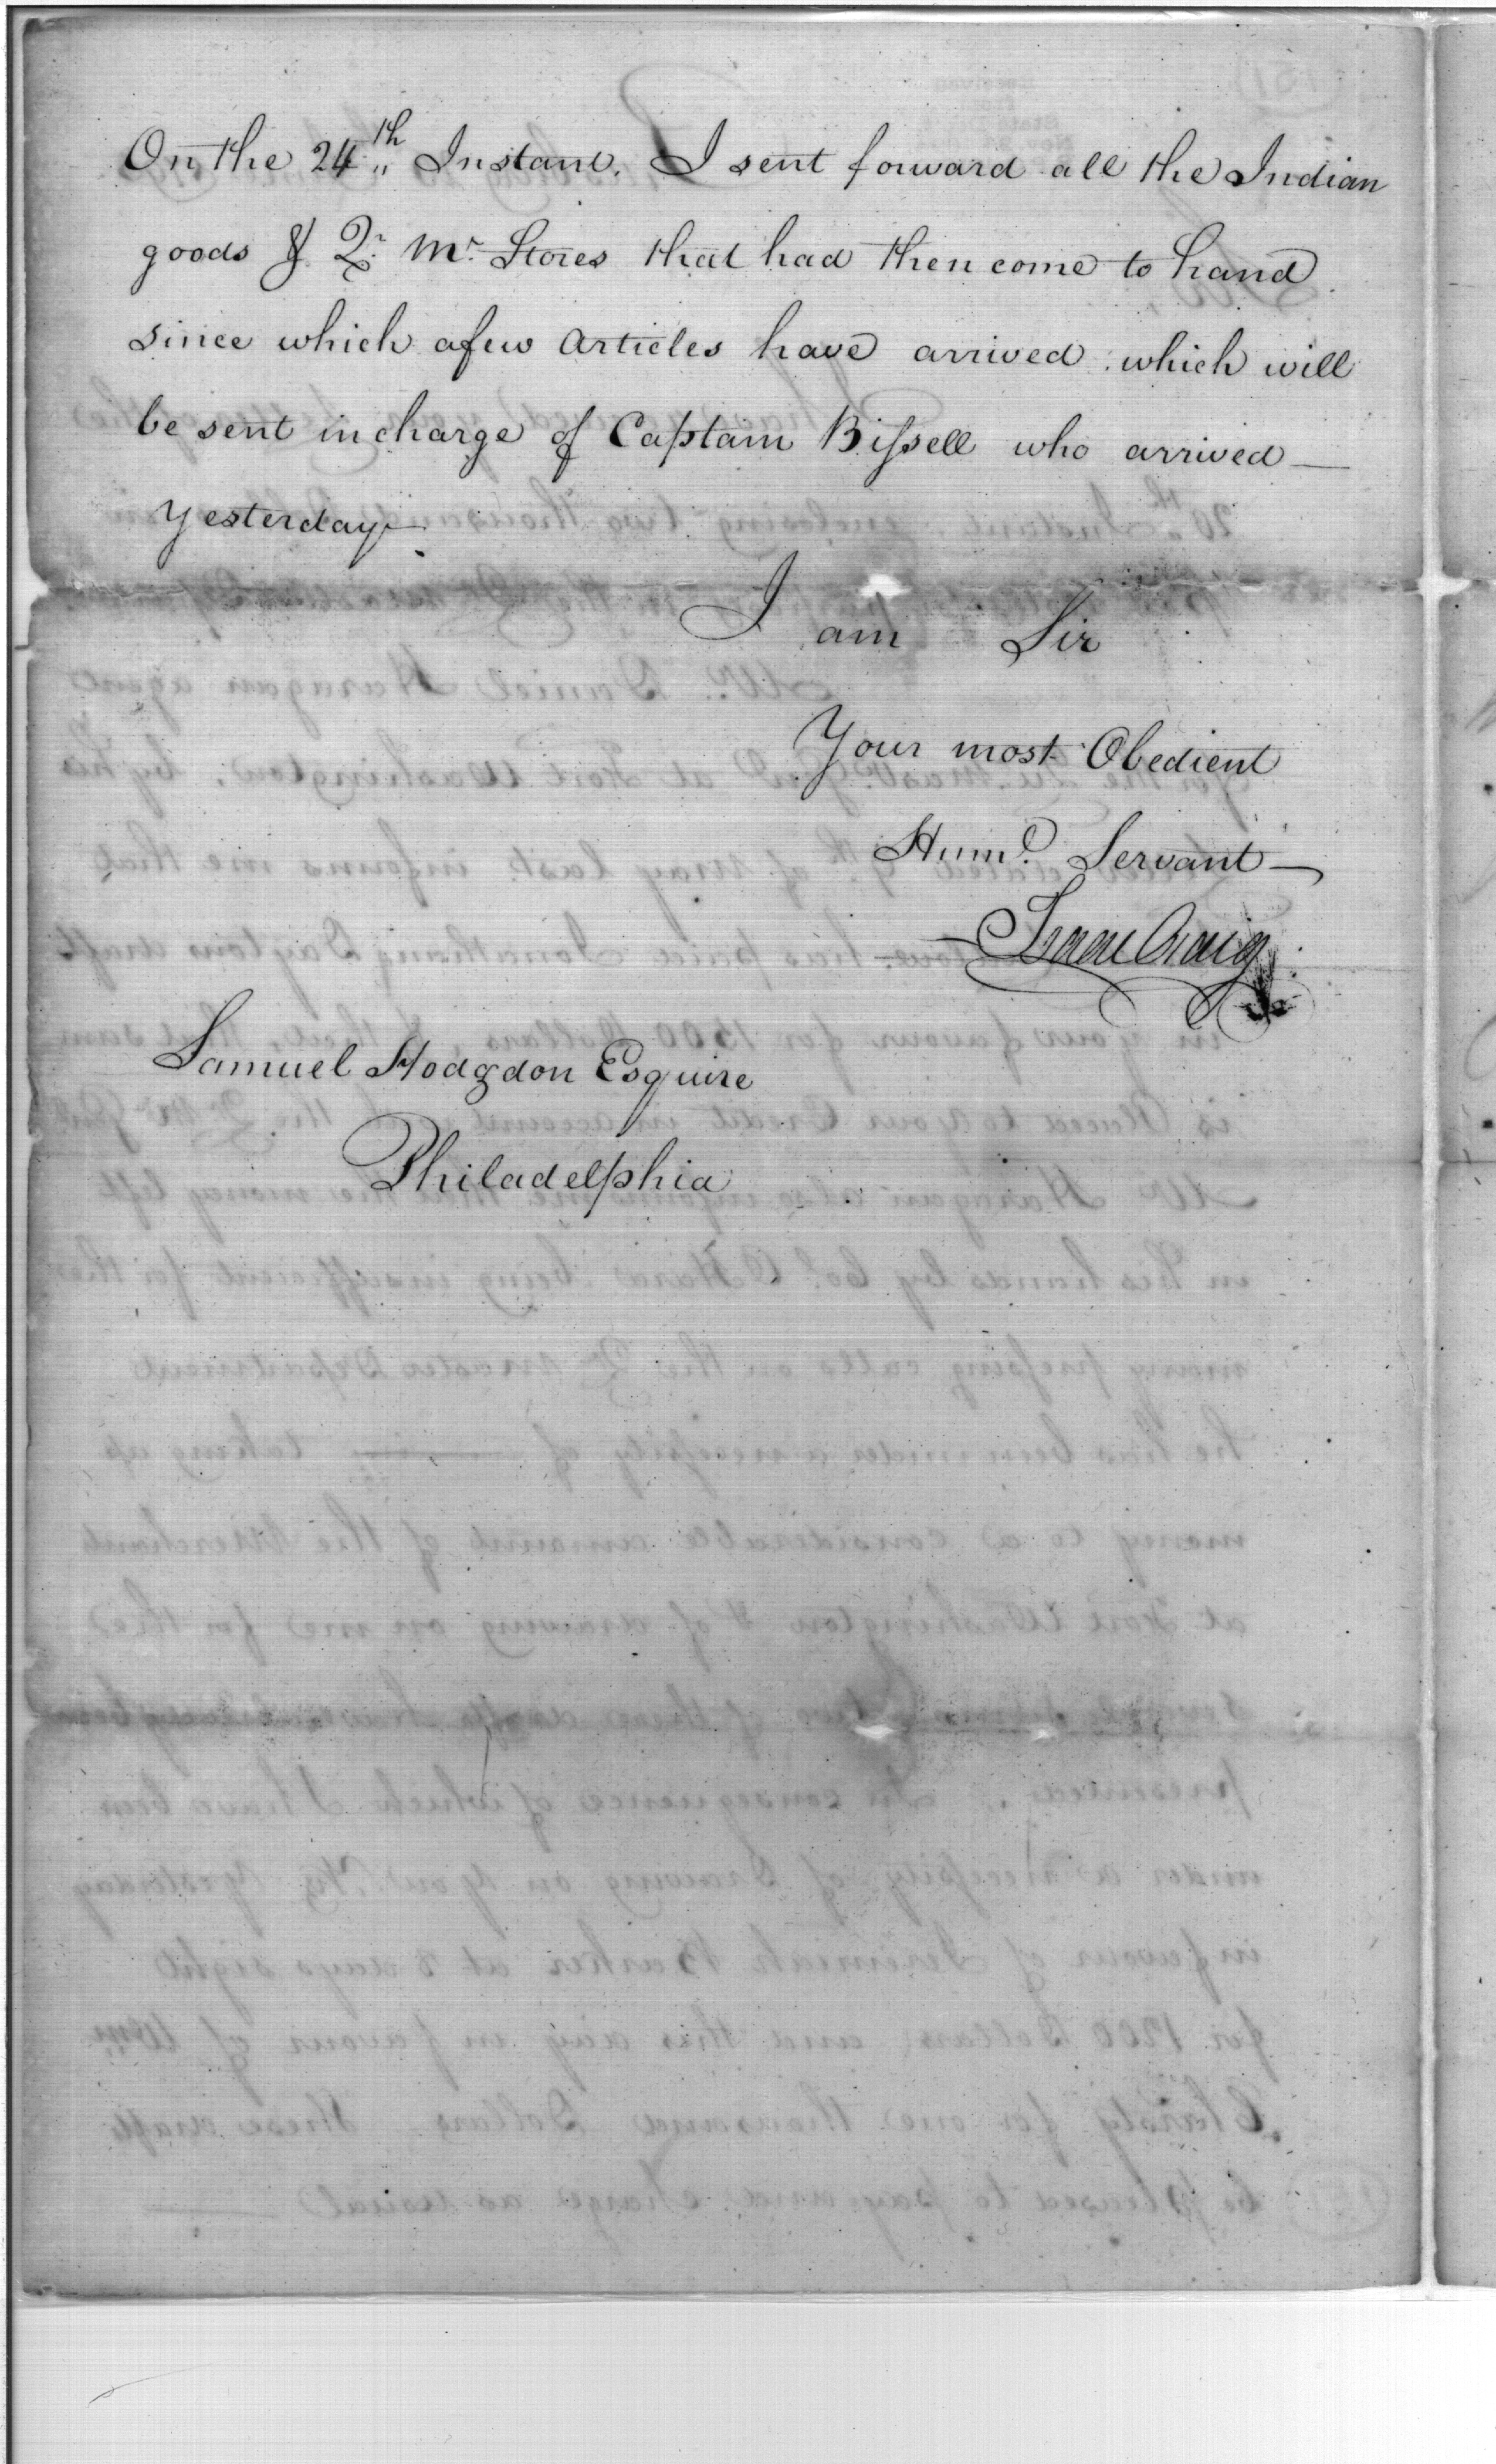 On the 24th Instant. I sent forward all the Indian
goods & Qr. Mr. Stores that had then come to hand
since which afew articles have arrived which will
be sent in charge of Captain Bissell who arrived —
yesterday —
I am Sir
Your most Obedient
Hume. Servant —
Isaac Craig
Samuel Hodgdon Esquire
Philadelphia